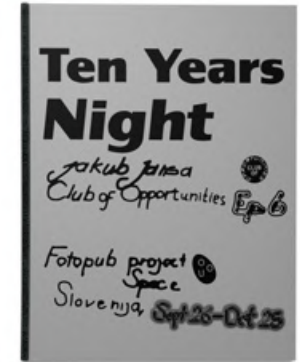 Ten Years
Night
Jakub Jansa
Club of Opportunities Ep6
Fotopub project
Space
Slovenija Sept 26-Oct 25